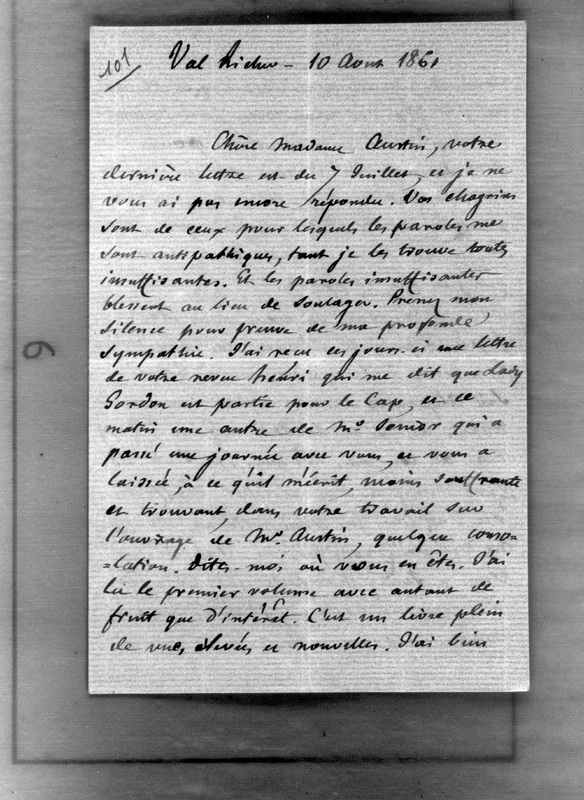 101
Val Richer - 10 Aout 1861
Chère Madame Austin, votre
dernière lettre est du 7 Juillet, et je ne
vous ai pas encore répondu. Vos chagrins
sont de ceux pour lesquels les paroles me
sont antipathiques, tant je les trouve toutes
insuffisantes. Et les paroles insuffisantes
blessent au lieu de soulager. Prenez mon
silence pour preuve de ma profonde
sympathie. J'ai reçu ces jours-ci une lettre
de votre neveu henri qui me dit que Lady
Gordon est partie pour le Cap, et ce
matin une autre de Mr. Senior qui a
passé une journée avec vous, et vous a
laissée, à ce qu'il m'écrit, moins souffrante
et trouvant, dans votre travail sur
l'ouvrage de Mr. Austin, quelque conso=
=lation. Dites-moi où vous en êtes. J'ai
lu le premier volume avec autant de
fruit que d'intérêt. C'est un livre plein
de vues élevées et nouvelles. J'ai bien
6